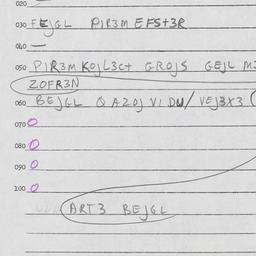 020
030 FEJGL PIR3M EFST3R
040 —
050 PIR3M KOJL3CT GROJS GEJL
ZOFR3N
060 BEJGL QAZOJ VI DU/ VEJ3X3 (
070 0
080 0
090 0
100 0
ART3 BEJGL